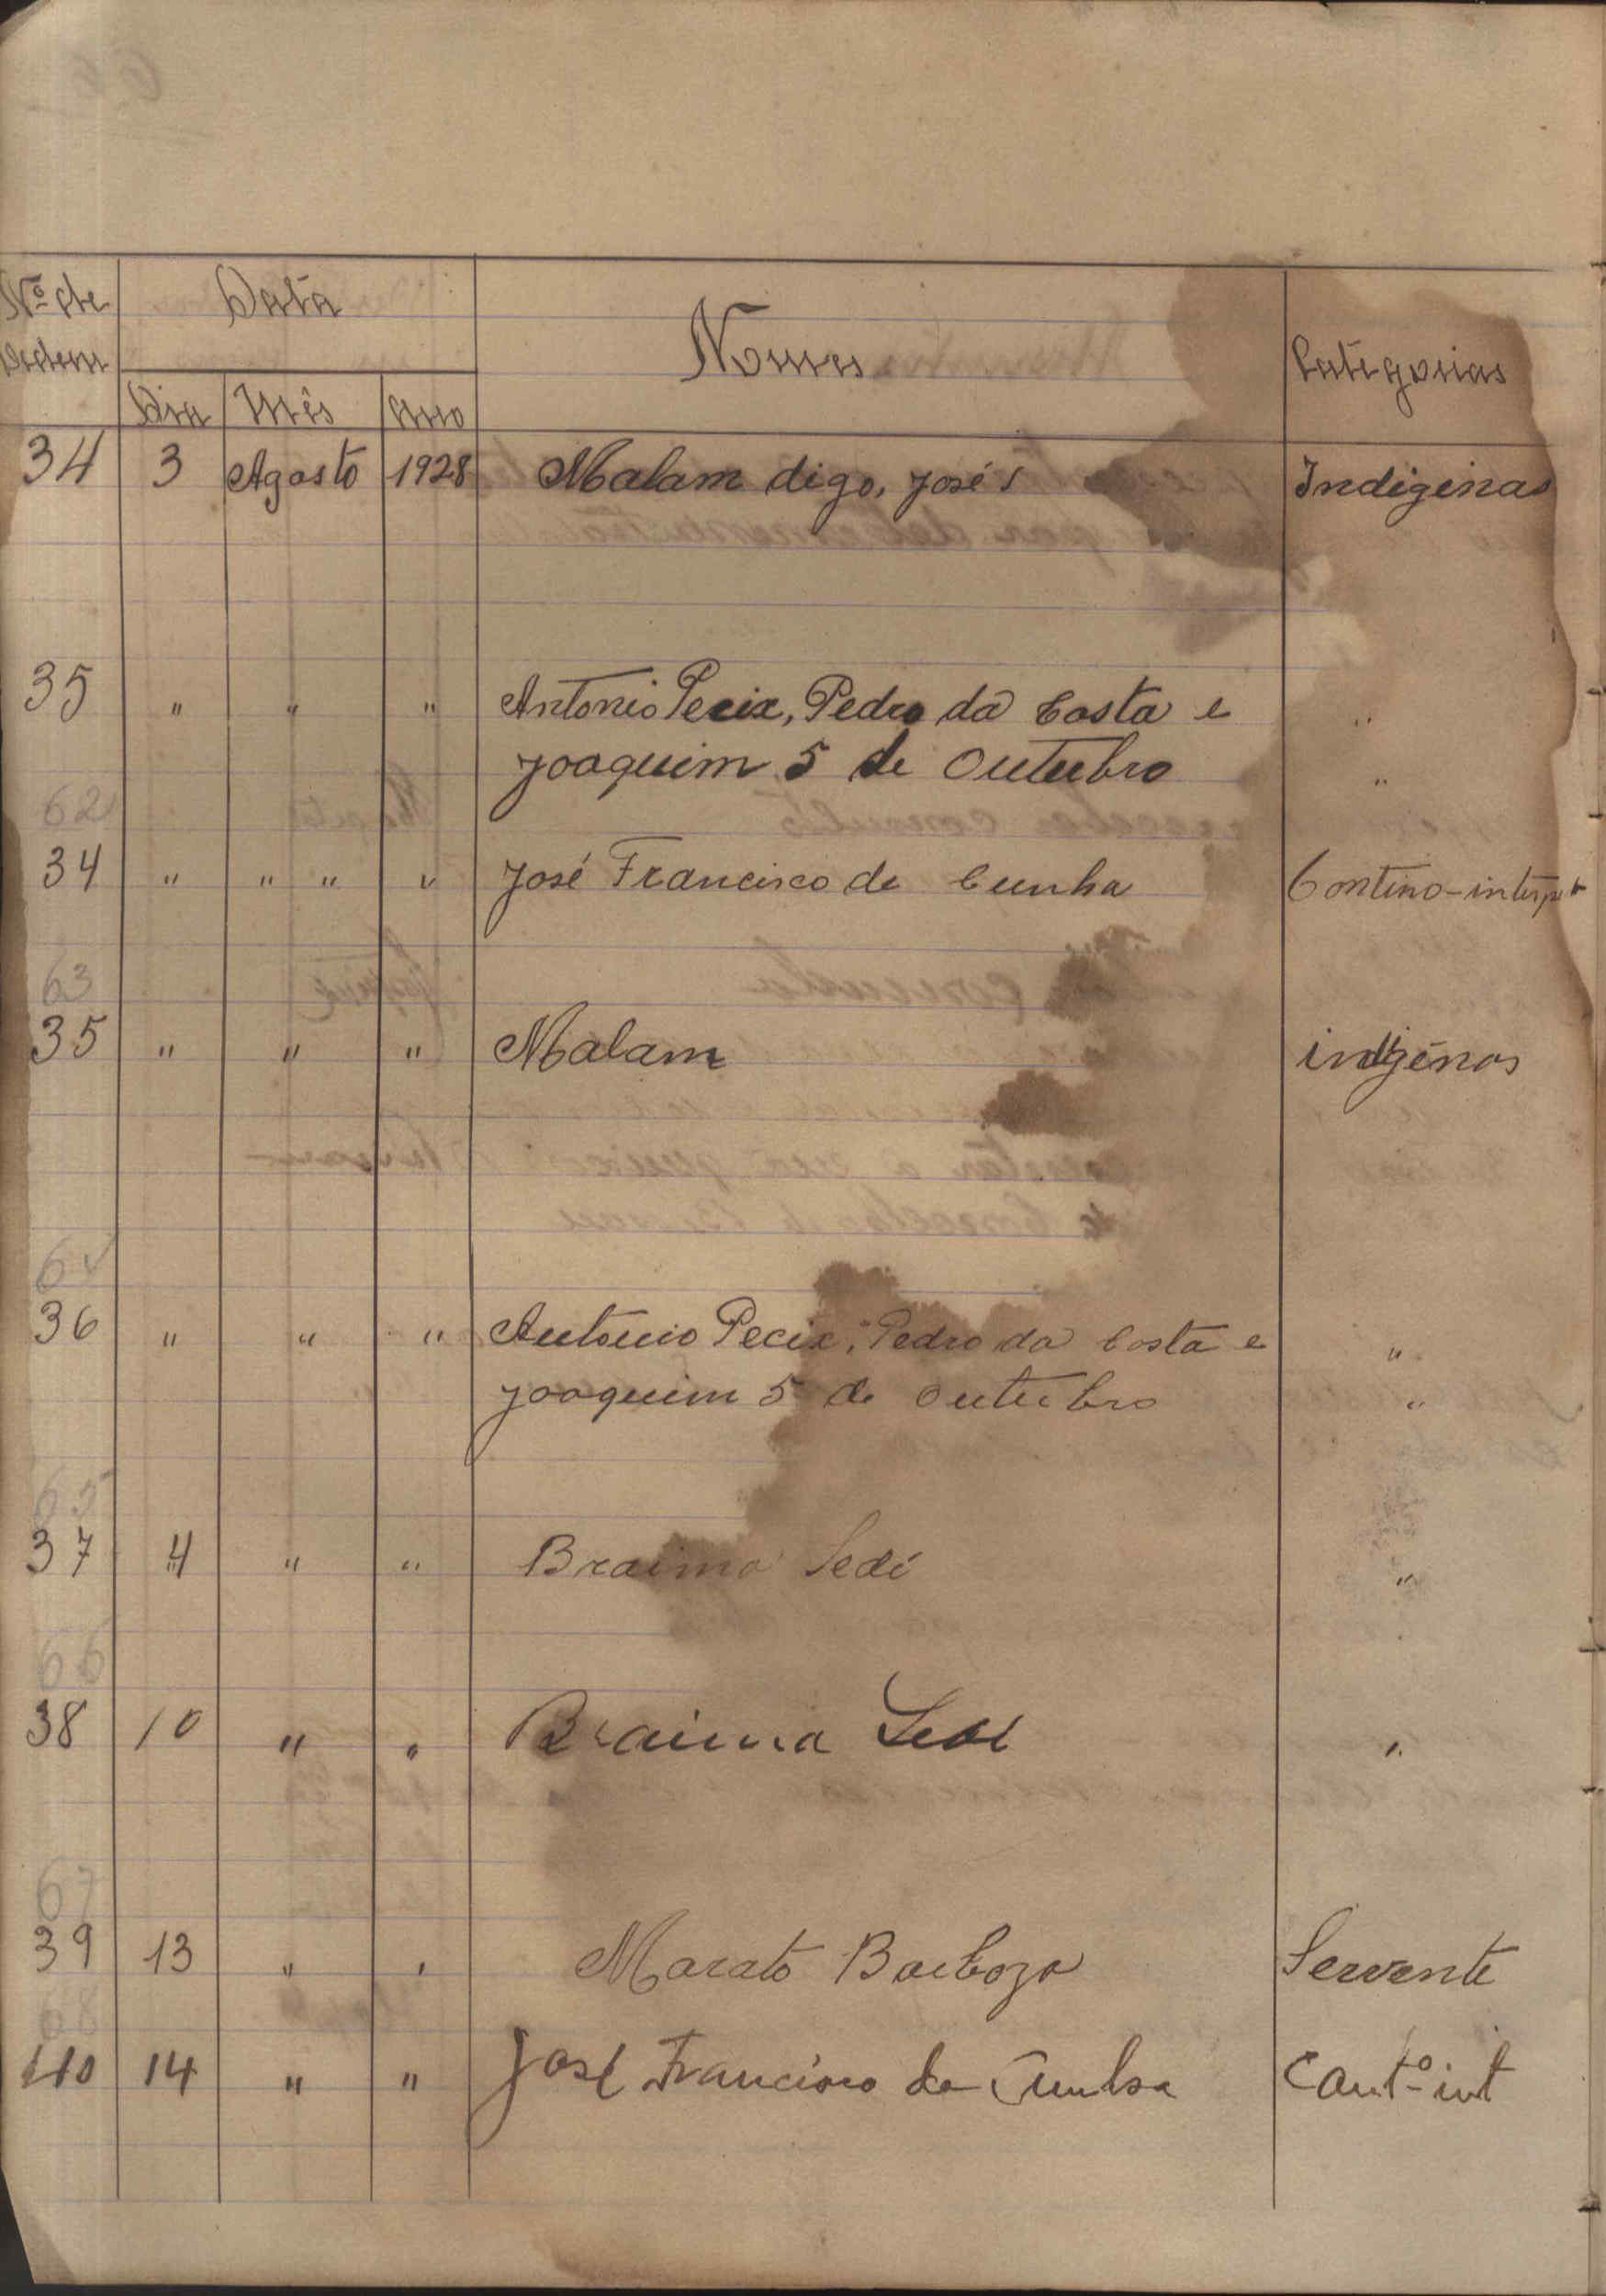 Nº de Ordem Data Nomes Categorias
Dia Mês Ano
34 3 Agosto 1928 Malam digo, José Indigenas
35 " " " Antonio Pecix, Pedro da Costa e "
Joaquim 5 de Outubro "
62
34 " " " " José Francisco de Cunha Contino-interpt
63
35 " " " Malam indígenas
64
36 " " " Antonio Pecix, Pedro da Costa e "
Joaquim 5 de Outubro "
65
37 4 " " Braima Sedi "
66
38 10 " " Braima Sedi "
67
39 13 " " Marato Barboza Servente
68
40 14 " " José Francisco da Cunha Contº int